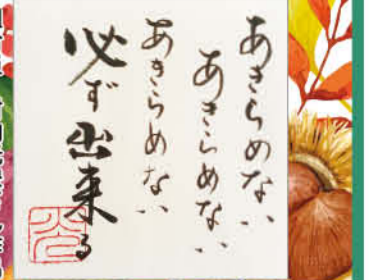 あきらめない
あきらめない
あきらめない
必ず出来る